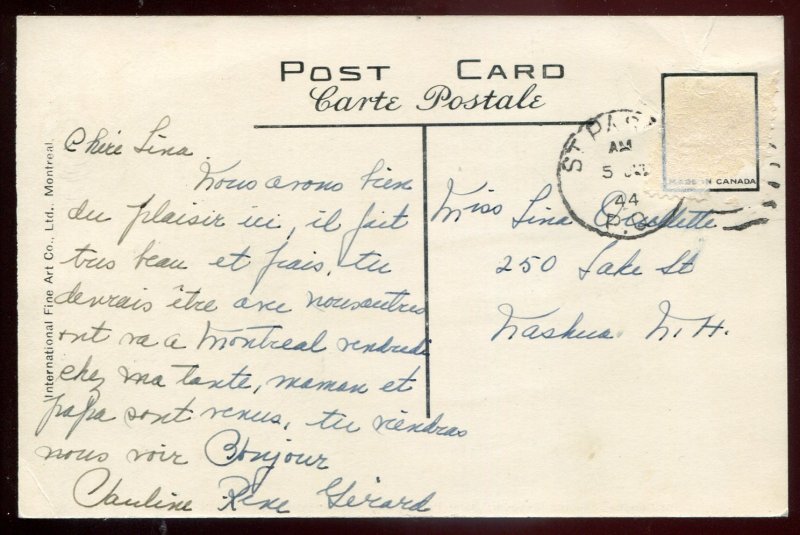 POST CARD
Carte Postale
International Fine Art Co., Ltd., Montreal.
ST PAS
AM
5
44
P.Q
MADE IN CANADA
Chère Lina
Nous avons bien
du plaisir ici, il fait
très beau et frais, tu
devrais être avec nous autres
ont va a Montreal vendredi
chez ma tante, maman et
papa sont venus, tu viendras
nous voir Bonjour
Pauline Rene Gérard
Miss Lina Ouellette
250 Lake St
Nashua N.H.